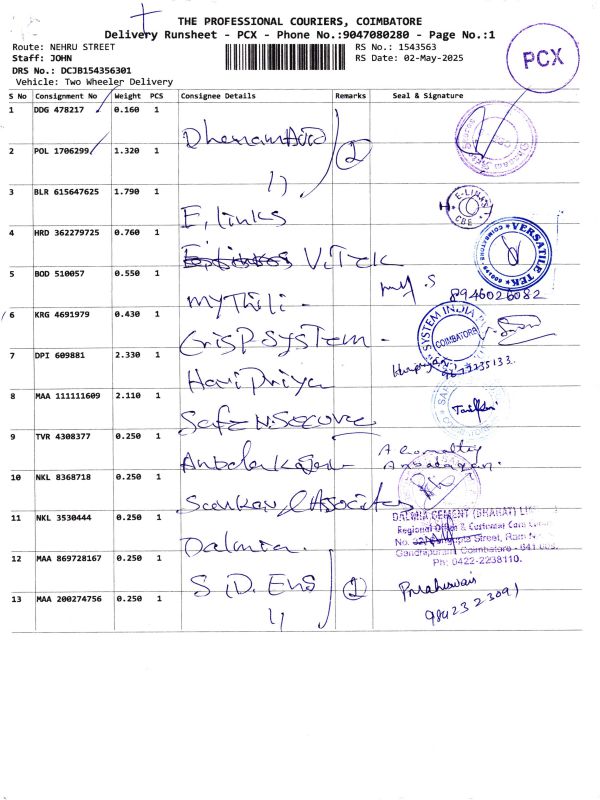 THE PROFESSIONAL COURIERS, COIMBATORE
Delivery Runsheet - PCX - Phone No.:9047080280 - Page No.:1
Route: NEHRU STREET
Staff: JOHN
DRS No.: DCJB154356301
Vehicle: Two Wheeler Delivery
RS No.: 1543563
RS Date: 02-May-2025
PCX
S No Consignment No Weight PCS Consignee Details Remarks Seal & Signature
1 DDG 478217 0.160 1
2 POL 1706299 1.320 1 11 2
3 BLR 615647625 1.790 1 E, links E-LINKS CBE
4 HRD 362279725 0.760 1 V.Tek VERSATILE TEK COIMBATORE
5 BOD 510057 0.550 1 MyThili - 8946026082
6 KRG 4691979 0.430 1 Crisp System - SYSTEM INDIA COIMBATORE
7 DPI 609881 2.330 1 Hari Priya
8 MAA 111111609 2.110 1 Safe N. Secure
9 TVR 4308377 0.250 1 Anbalagan.
10 NKL 8368718 0.250 1
11 NKL 3530444 0.250 1 Dalmia. DALMIA CEMENT (BHARAT)
Regional Office & Customer Care
Street, Ram
Gandhipuram Coimbatore - 641
Ph: 0422-2238110.
12 MAA 869728167 0.250 1 S.D. Eng 1
13 MAA 200274756 0.250 1 11 98423 23091